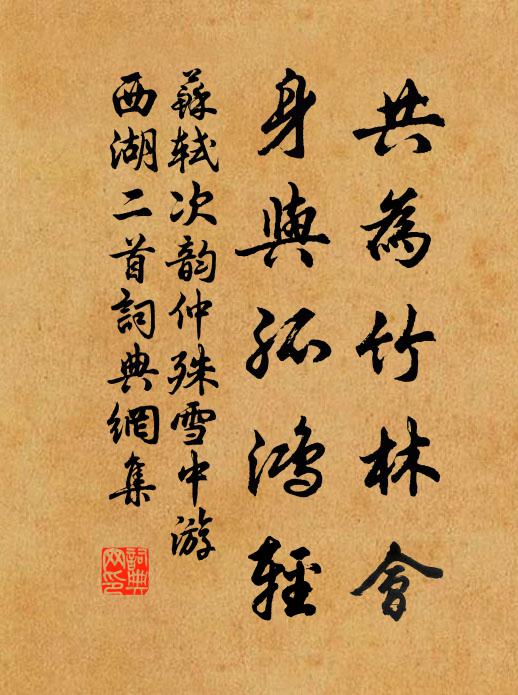 共為竹林會
身與孤鴻輕
蘇軾次韵仲殊雪中游
西湖二首詞典網集
詞典
网印